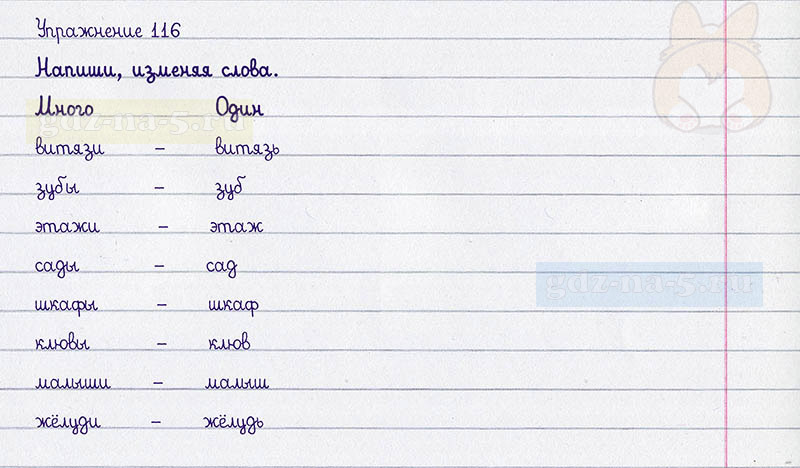 Упражнение 116
Напиши, изменяя слова.
Много Один
gdz-na-5.ru
витязи – витязь
зубы – зуб
этажи – этаж
сады – сад
gdz-na-5.ru
шкафы – шкаф
клювы – клюв
малыши – малыш
жёлуди – жёлудь